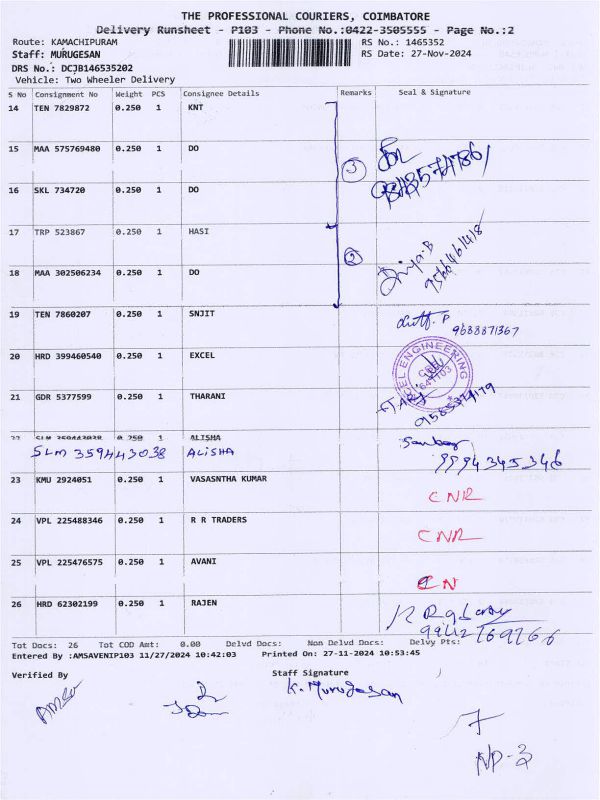 THE PROFESSIONAL COURIERS, COIMBATORE
Delivery Runsheet - P103 - Phone No.:0422-3505555 - Page No.:2
Route: KAMACHIPURAM RS No.: 1465352
Staff: MURUGESAN RS Date: 27-Nov-2024
DRS No.: DCJB146535202
Vehicle: Two Wheeler Delivery
S No Consignment No Weight PCS Consignee Details Remarks Seal & Signature
14 TEN 7829872 0.250 1 KNT
15 MAA 575769480 0.250 1 DO
3
16 SKL 734720 0.250 1 DO
17 TRP 523867 0.250 1 HASI
2
18 MAA 302506234 0.250 1 DO
19 TEN 7860207 0.250 1 SNJIT
9688871367
20 HRD 399460540 0.250 1 EXCEL
EXCEL ENGINEERING
641103
21 GDR 5377599 0.250 1 THARANI
22 SLM 359443038 0.250 1 ALISHA
SLM 359443038 ALISHA
9994345346
23 KMU 2924051 0.250 1 VASASNTHA KUMAR
CNR
24 VPL 225488346 0.250 1 R R TRADERS
CNR
25 VPL 225476575 0.250 1 AVANI
CN
26 HRD 62302199 0.250 1 RAJEN
Tot Docs: 26 Tot COD Amt: 0.00 Delvd Docs: Non Delvd Docs: Delvy Pts:
Entered By :AMSAVENIP103 11/27/2024 10:42:03 Printed On: 27-11-2024 10:53:45
Verified By Staff Signature
K. Murugesan
7
NP-3